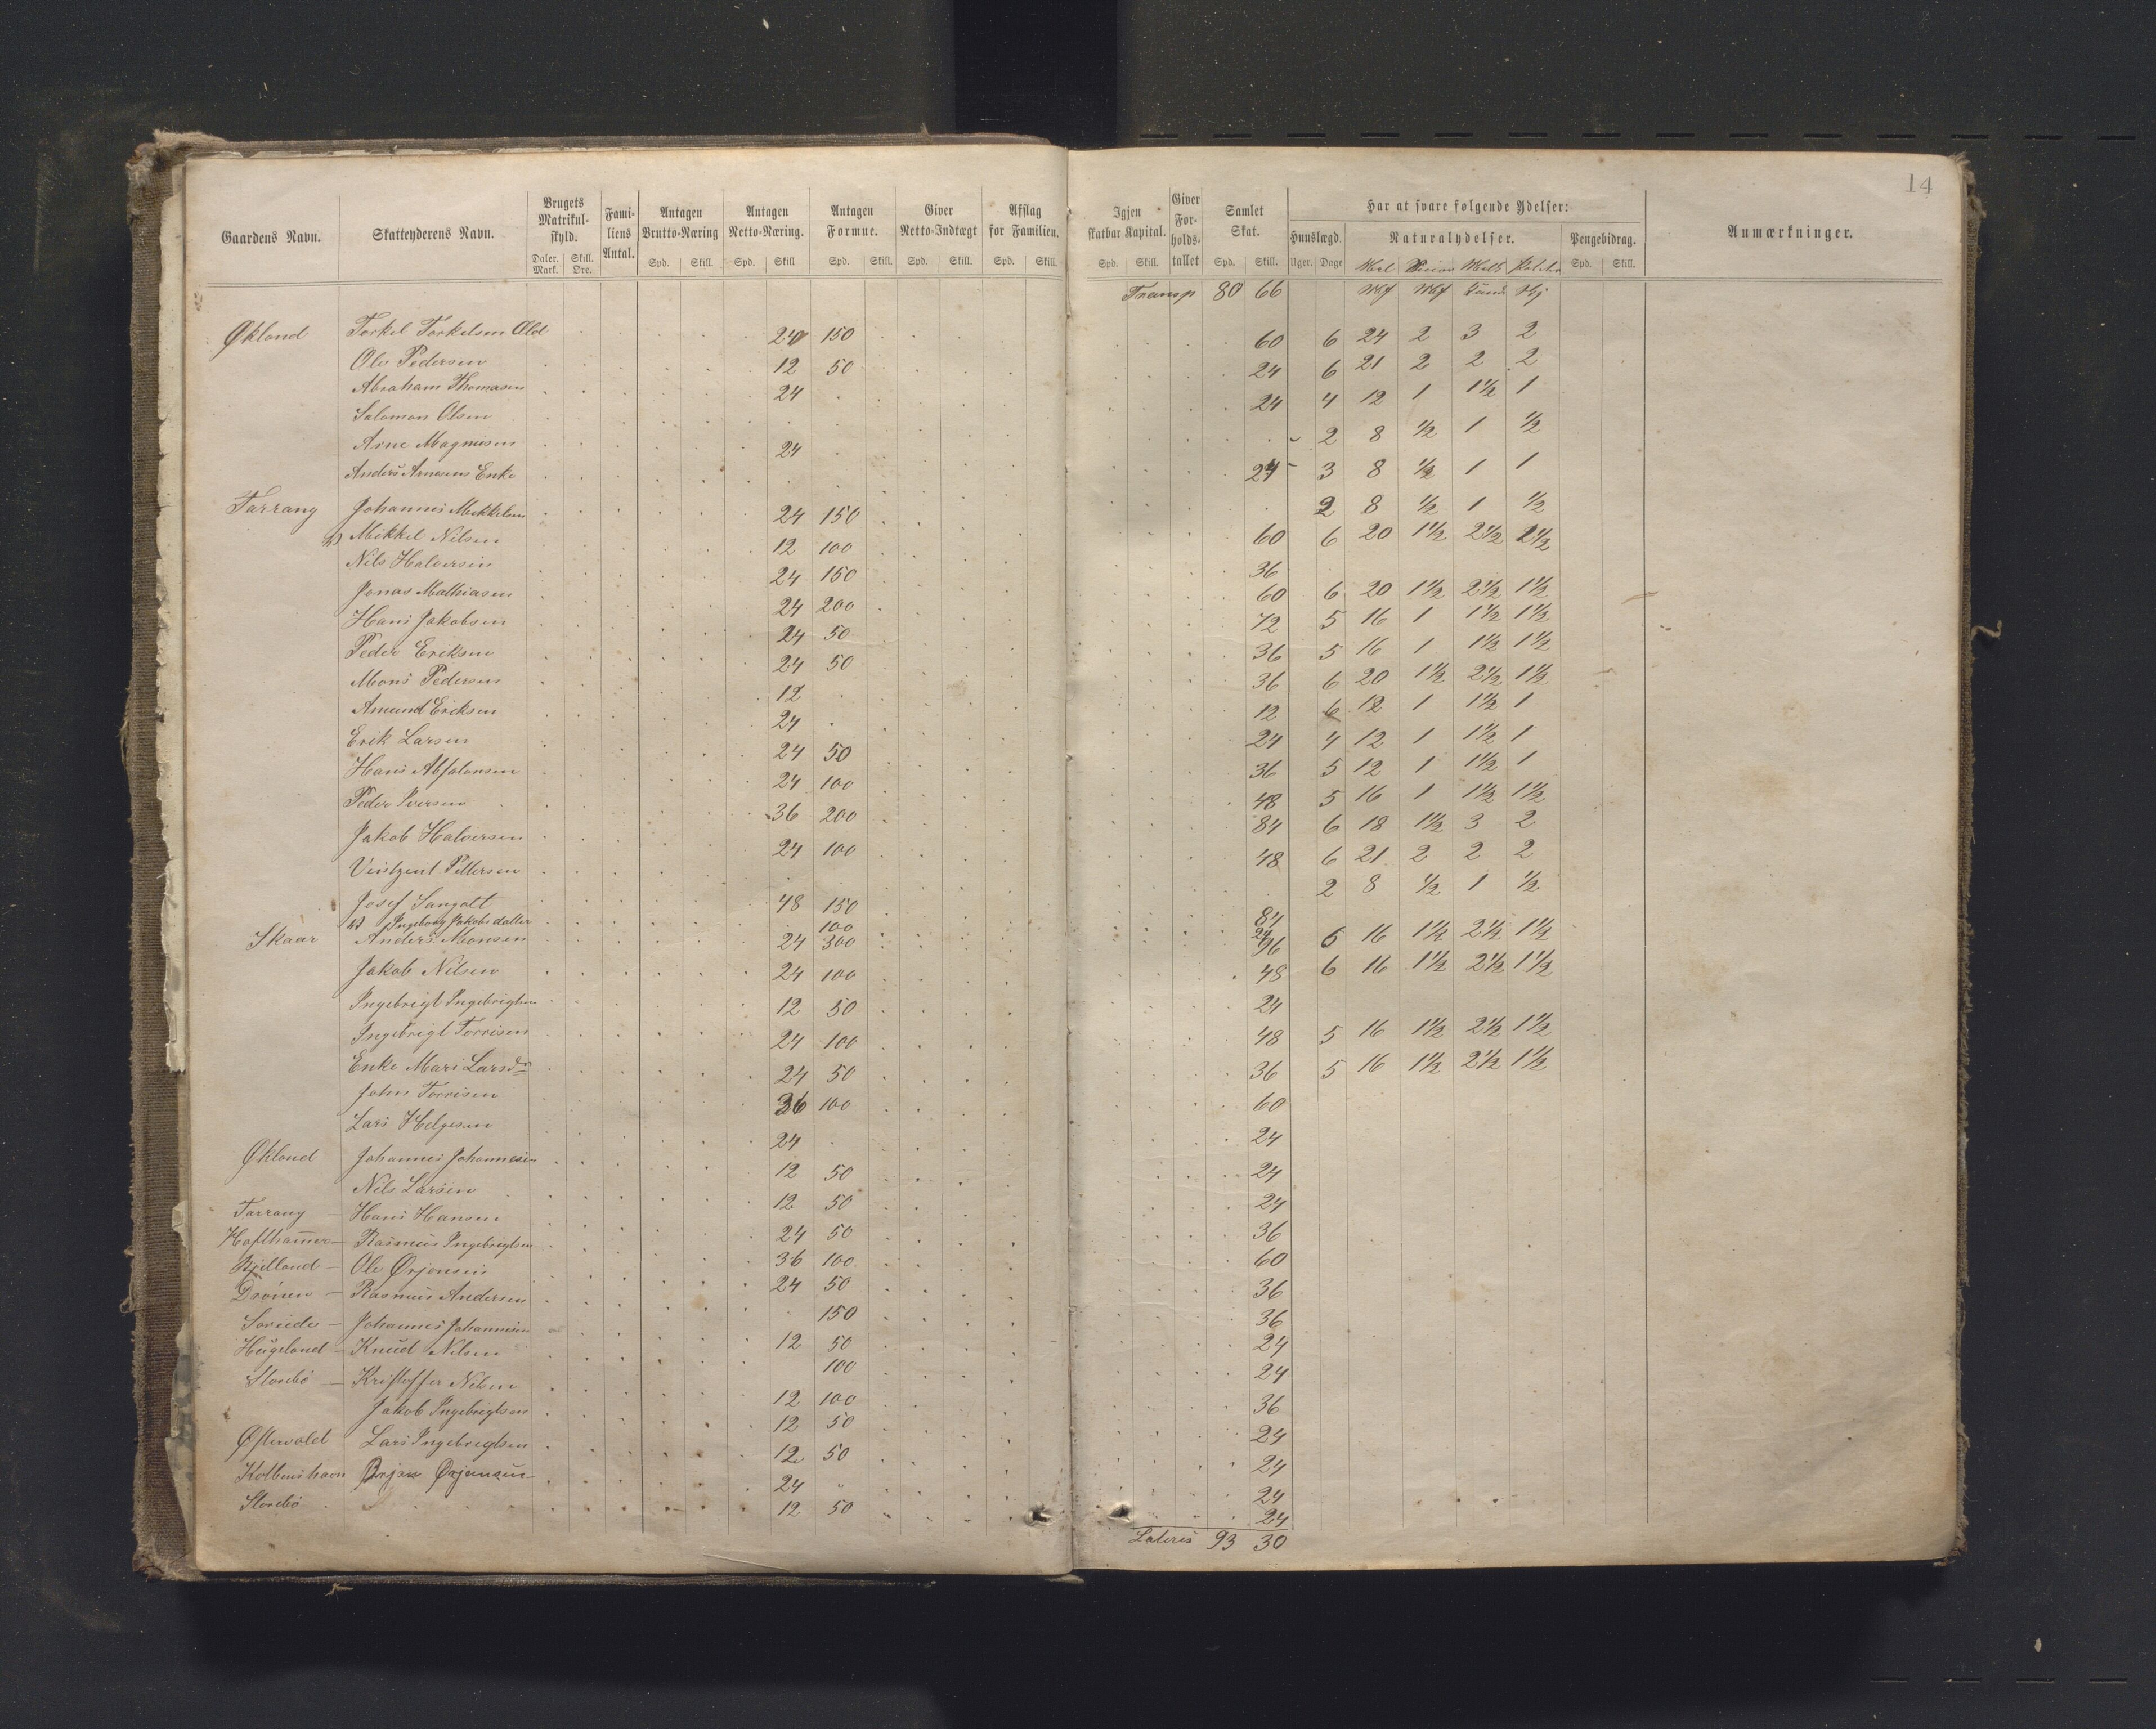 14
Gaardens Navn. Skatteyderens Navn. Brugets Matrikul-skyld. Fami-liens Antal. Antagen Brutto-Næring Antagen Netto-Næring. Antagen Formue. Giver Netto-Indtægt Afslag for Familien. Igjen skatbar Kapital. Giver For-holds-tallet Samlet Skat. Har at svare følgende Ydelser: Anmærkninger.
Huuslægd. Naturalydelser. Pengebidrag.
Daler. Mark. Skill. Ore. Spd. Skill. Spd. Skill Spd. Skill. Spd. Skill. Spd. Skill. Spd. Skill. Spd. Skill. Uger. Dage Spd. Skill.
Transp 80 66
Økland Torkel Torkelsen Økl 24 150 60 6 24 2 3 2
Ole Pedersen 12 50 24 6 21 2 2 2
Abraham Thomasen 24 24 4 12 1 1½ 1
Salomon Olsen 2 8 ½ 1 ½
Arne Magnusen 24 24 3 8 ½ 1 1
Anders Arnesens Enke 2 8 ½ 1 ½
Tarrang Johannes Mikkelsen 24 150 60 6 20 1½ 2½ 2½
Mikkel Nilsen 12 100 36
Nils Halversen 24 150 60 6 20 1½ 2½ 1½
Jonas Mathiasen 24 200 72 5 16 1 1½ 1½
Hans Jakobsen 24 50 36 5 16 1 1½ 1½
Peder Eriksen 24 50 36 6 20 1½ 2½ 1½
Mons Pedersen 12 12 6 12 1 1½ 1
Amund Ericksen 24 24 4 12 1 1½ 1
Erik Larsen 24 50 36 5 12 1 1½ 1
Hans Absalonsen 24 100 48 5 16 1 1½ 1½
Peder Iversen 36 200 84 6 18 1½ 3 2
Jakob Halversen 24 100 48 6 21 2 2 2
Vintzent Pettersen 2 8 ½ 1 ½
Josef Sangolt 48 150 84
Ingeborg Jakobsdatter 100 24
Skaar Anders Monsen 24 300 96 6 16 1½ 2½ 1½
Jakob Nilsen 24 100 48 6 16 1½ 2½ 1½
Ingebrigt Ingebrigtsen 12 50 24
Ingebrigt Torrisen 24 100 48 5 16 1½ 2½ 1½
Enke Mari Larsdr 24 50 36 5 16 1½ 2½ 1½
John Torrisen 36 100 60
Lars Helgesen 24 24
Økland Johannes Johannesen 12 50 24
Nils Larsen 12 50 24
Tarrang — Hans Hansen 24 50 36
Hafthamer — Rasmus Ingebrigtsen 36 100 60
Bjelland — Ole Ørjansen 24 50 36
Drönen — Rasmus Andersen 150 36
Soreide — Johannes Johannesen 12 50 24
Hügeland — Knud Nilsen 100 24
Storebö — Kristoffer Nilsen 12 100 36
Jakob Ingebregtsen 12 50 24
Østervold Lars Ingebregtsen 12 50 24
Kolbenshavn Ørjan Ørjansen 24 24
Storebö 12 50 24
Lateris 93 30